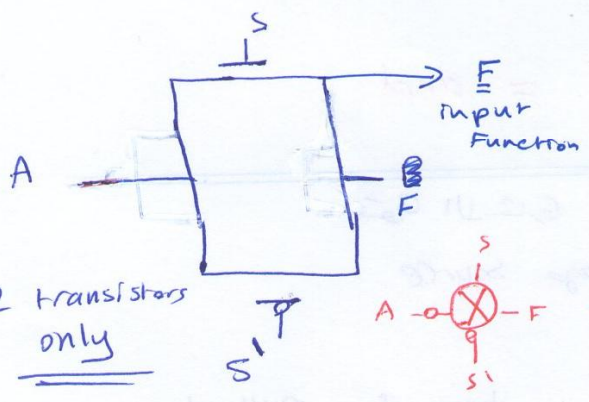 S
F
input
Function
A
F
2 transistors
only
S'
S
A
F
S'